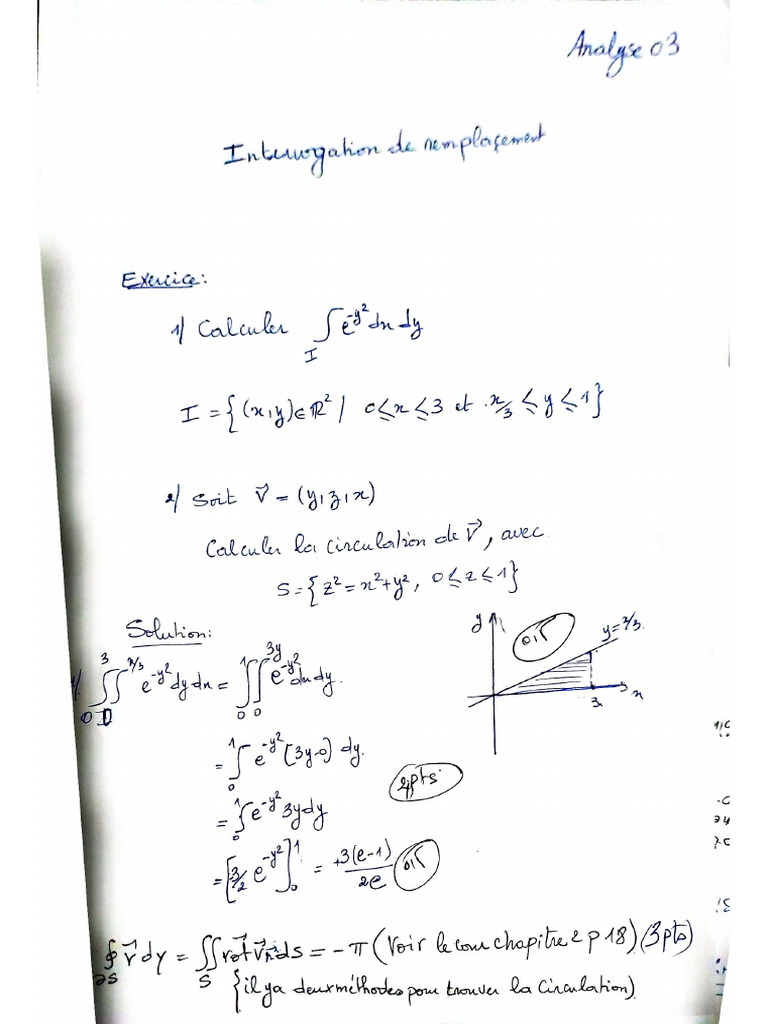 Analyse 03
Interrogation de remplaçement
Exercice:
1/ Calculer ∫_I e^{-y²} dx dy
I = {(x,y) ∈ ℝ² / 0 ≤ x ≤ 3 et x/3 ≤ y ≤ 1}
2/ Soit V⃗ = (y, z, x)
Calculer la circulation de V⃗, avec
S = {z² = x² + y², 0 ≤ z ≤ 1}
Solution:
y
0,5
y = x/3
x
3
1/. ∫_0^3 ∫^{x/3} e^{-y²} dy dx = ∫_0^1 ∫_0^{3y} e^{-y²} dx dy.
= ∫_0^1 e^{-y²} [3y-0] dy.
= ∫_0^1 e^{-y²} 3y dy
= [3/2 e^{-y²}]_0^1 = +3(e-1)/2e
0,5
∮_{∂S} V⃗ dγ = ∬_S rot V⃗ n⃗ ds = -π (Voir le cour chapitre 2 p 18) (3pts)
{il ya deux méthodes pour trouver la Circulation)